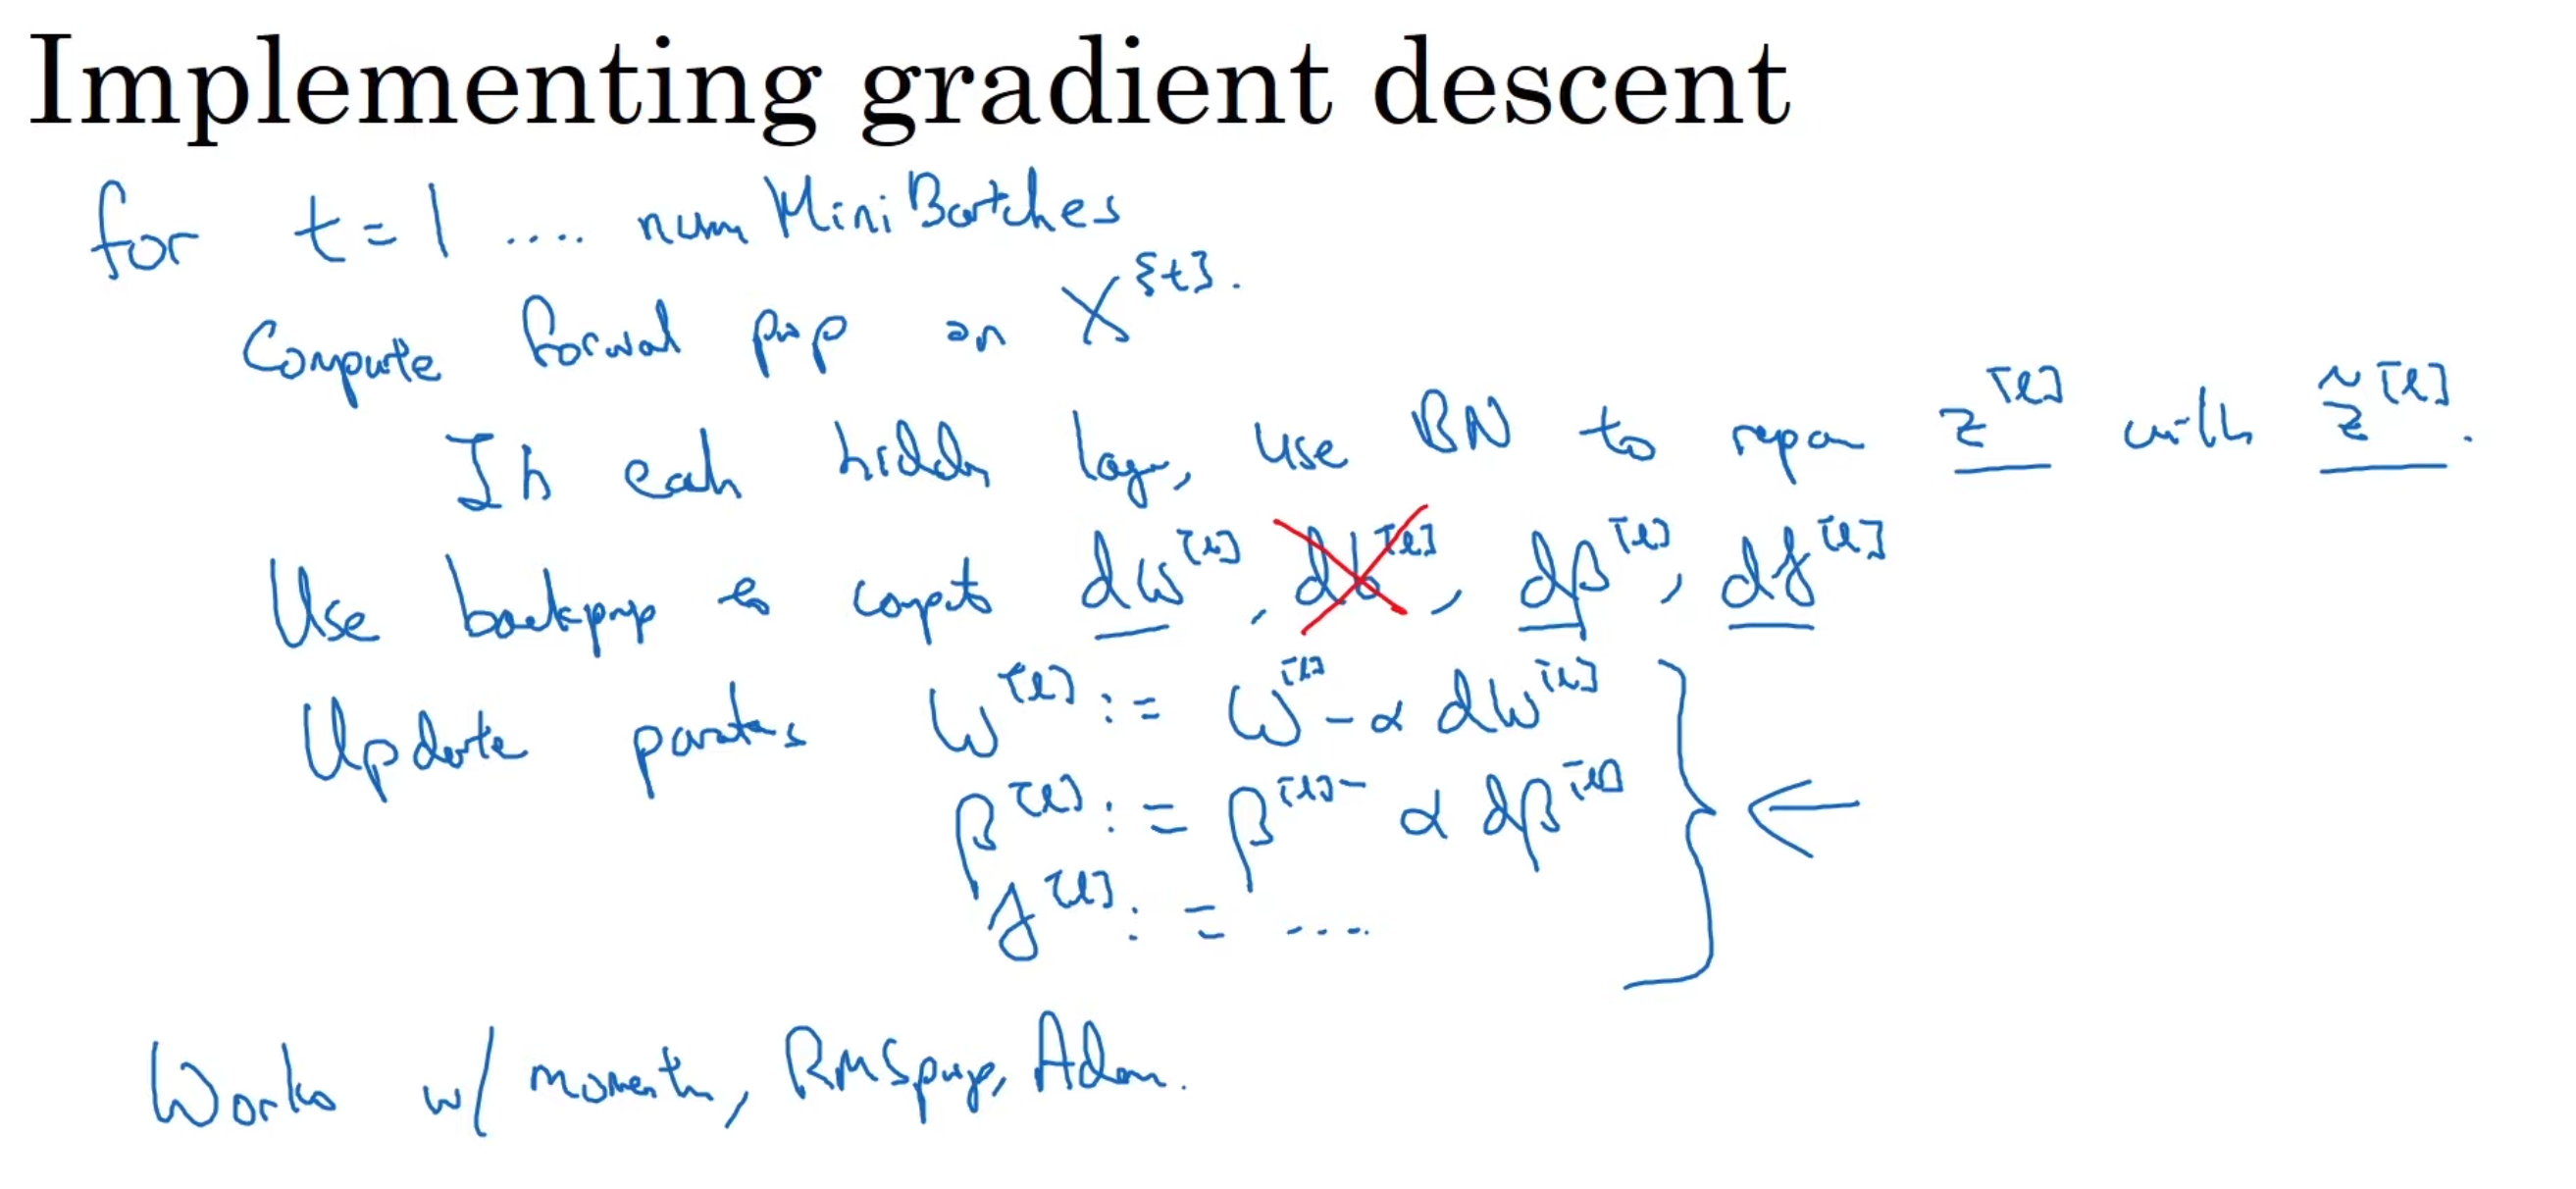 Implementing gradient descent
for t = 1 .... num Mini Batches
Compute forwal prop on X^{t}.
In each hidden layer, use BN to repa z^[l] with z̃^[l].
Use backprop to compute dw^[l], db^[l], dβ^[l], dγ^[l]
Update parameters W^[l] := W^[l] - α dW^[l]
β^[l] := β^[l] - α dβ^[l]
γ^[l] := ....
Works w/ momentum, RMSprop, Adam.